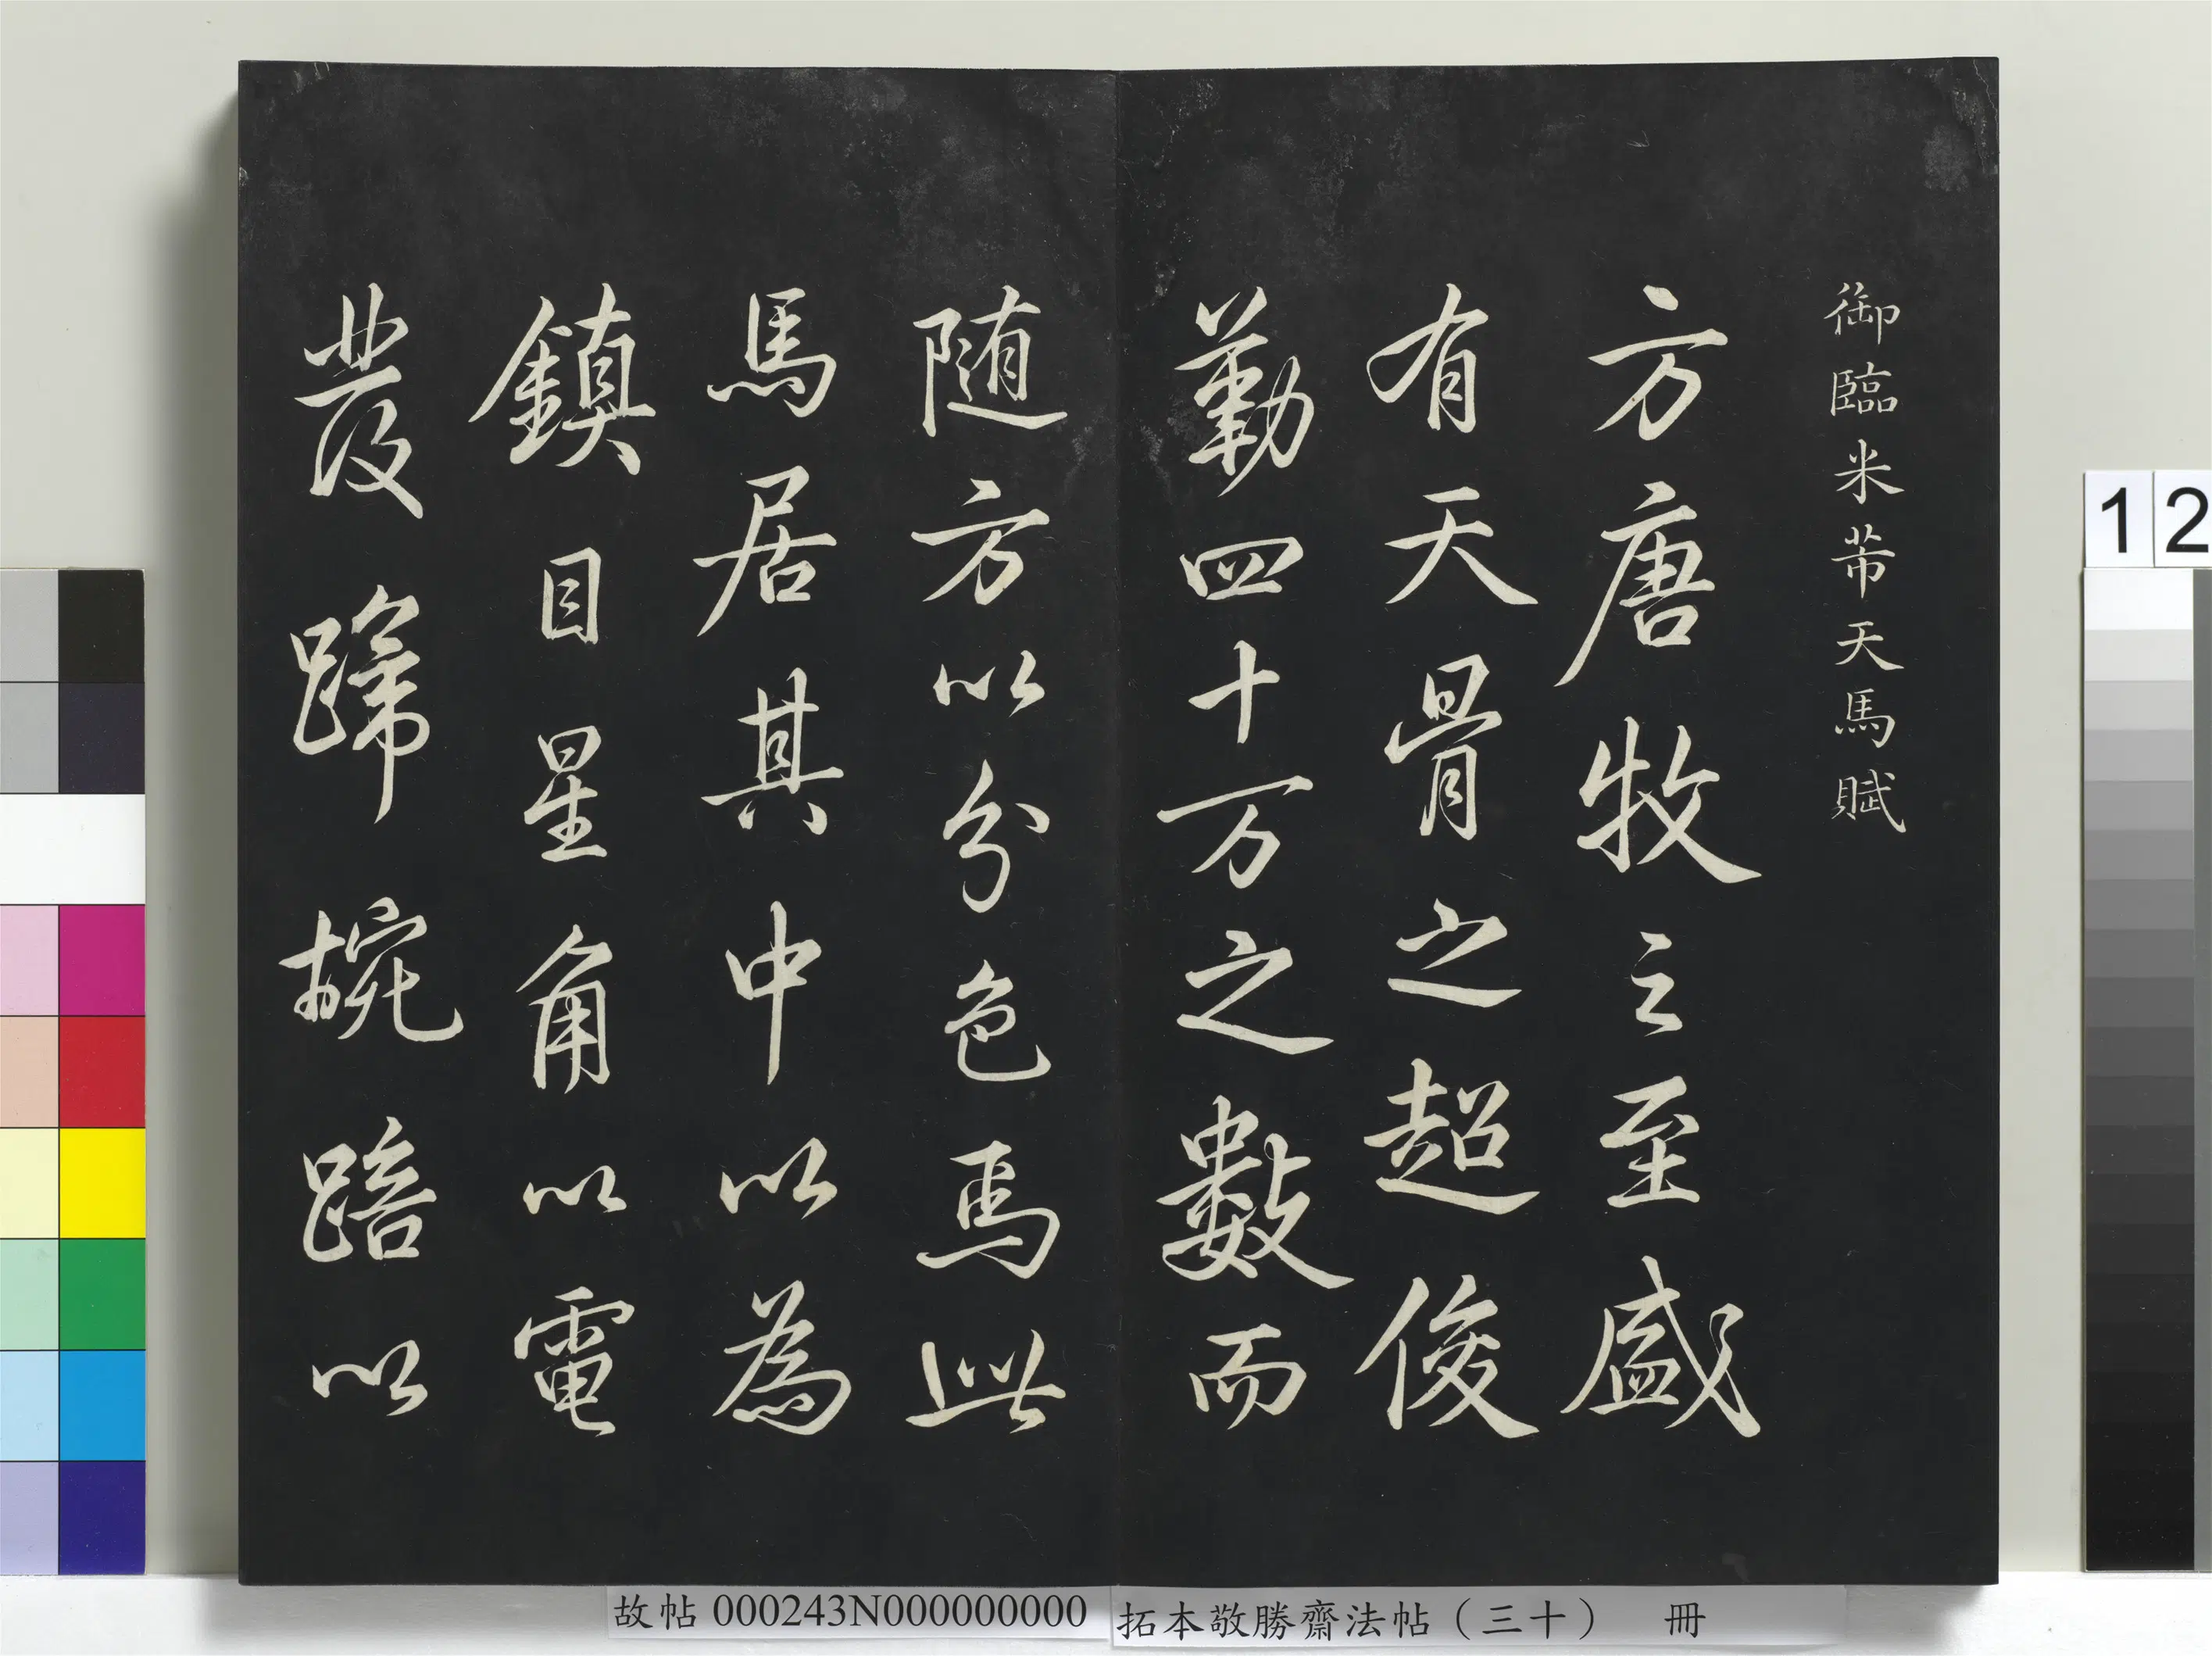 御臨米芾天馬賦
方唐牧之至盛
有天骨之超俊
勒四十万之數而
随方以分色焉此
馬居其中以為
鎮目星角以電
發蹄椀踣以
故帖 000243N000000000
拓本敬勝齋法帖（三十） 冊
1 2